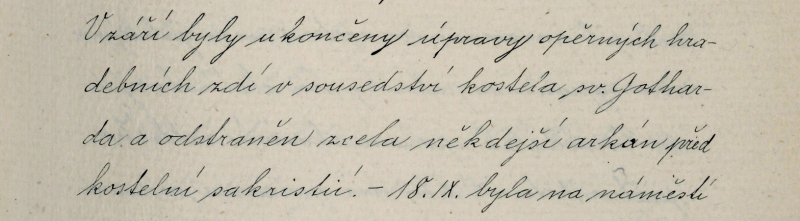 V září byly ukončeny úpravy opěrných hra-
debních zdí v sousedství kostela sv. Gothar-
da a odstraněn zcela někdejší arkán před
kostelní sakristií. – 18. IX. byla na náměstí